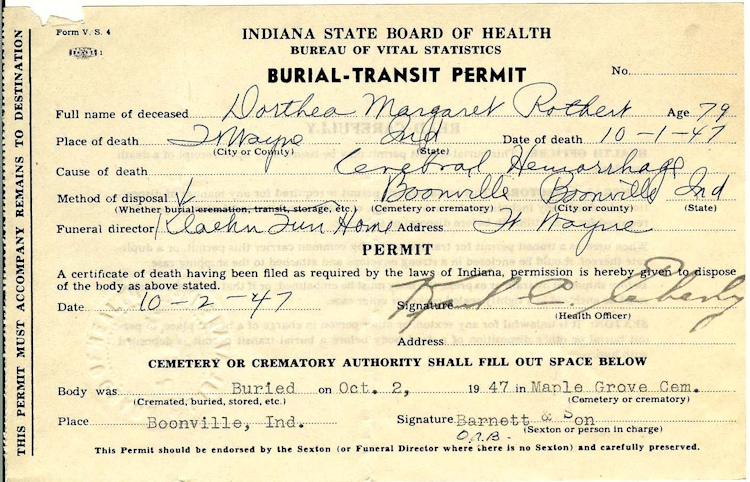 Form V. S. 4
INDIANA STATE BOARD OF HEALTH
BUREAU OF VITAL STATISTICS
BURIAL-TRANSIT PERMIT
No.
Full name of deceased Dorthea Margaret Rothert Age 79
Place of death Ft Wayne Ind Date of death 10-1-47
(City or County) (State)
Cause of death Cerebral Hemorrhage
Method of disposal Boonville Boonville Ind
(Whether burial cremation, transit, storage, etc.) (Cemetery or crematory) (City or county) (State)
Funeral director Klaehn Fun Home Address Ft Wayne
PERMIT
A certificate of death having been filed as required by the laws of Indiana, permission is hereby given to dispose
of the body as above stated.
Date 10-2-47 Signature
(Health Officer)
Address
CEMETERY OR CREMATORY AUTHORITY SHALL FILL OUT SPACE BELOW
Body was Buried on Oct. 2, 1947 in Maple Grove Cem.
(Cremated, buried, stored, etc.) (Cemetery or crematory)
Place Boonville, Ind. Signature Barnett & Son
(Sexton or person in charge)
O.R.B.
This Permit should be endorsed by the Sexton (or Funeral Director where there is no Sexton) and carefully preserved.
THIS PERMIT MUST ACCOMPANY REMAINS TO DESTINATION